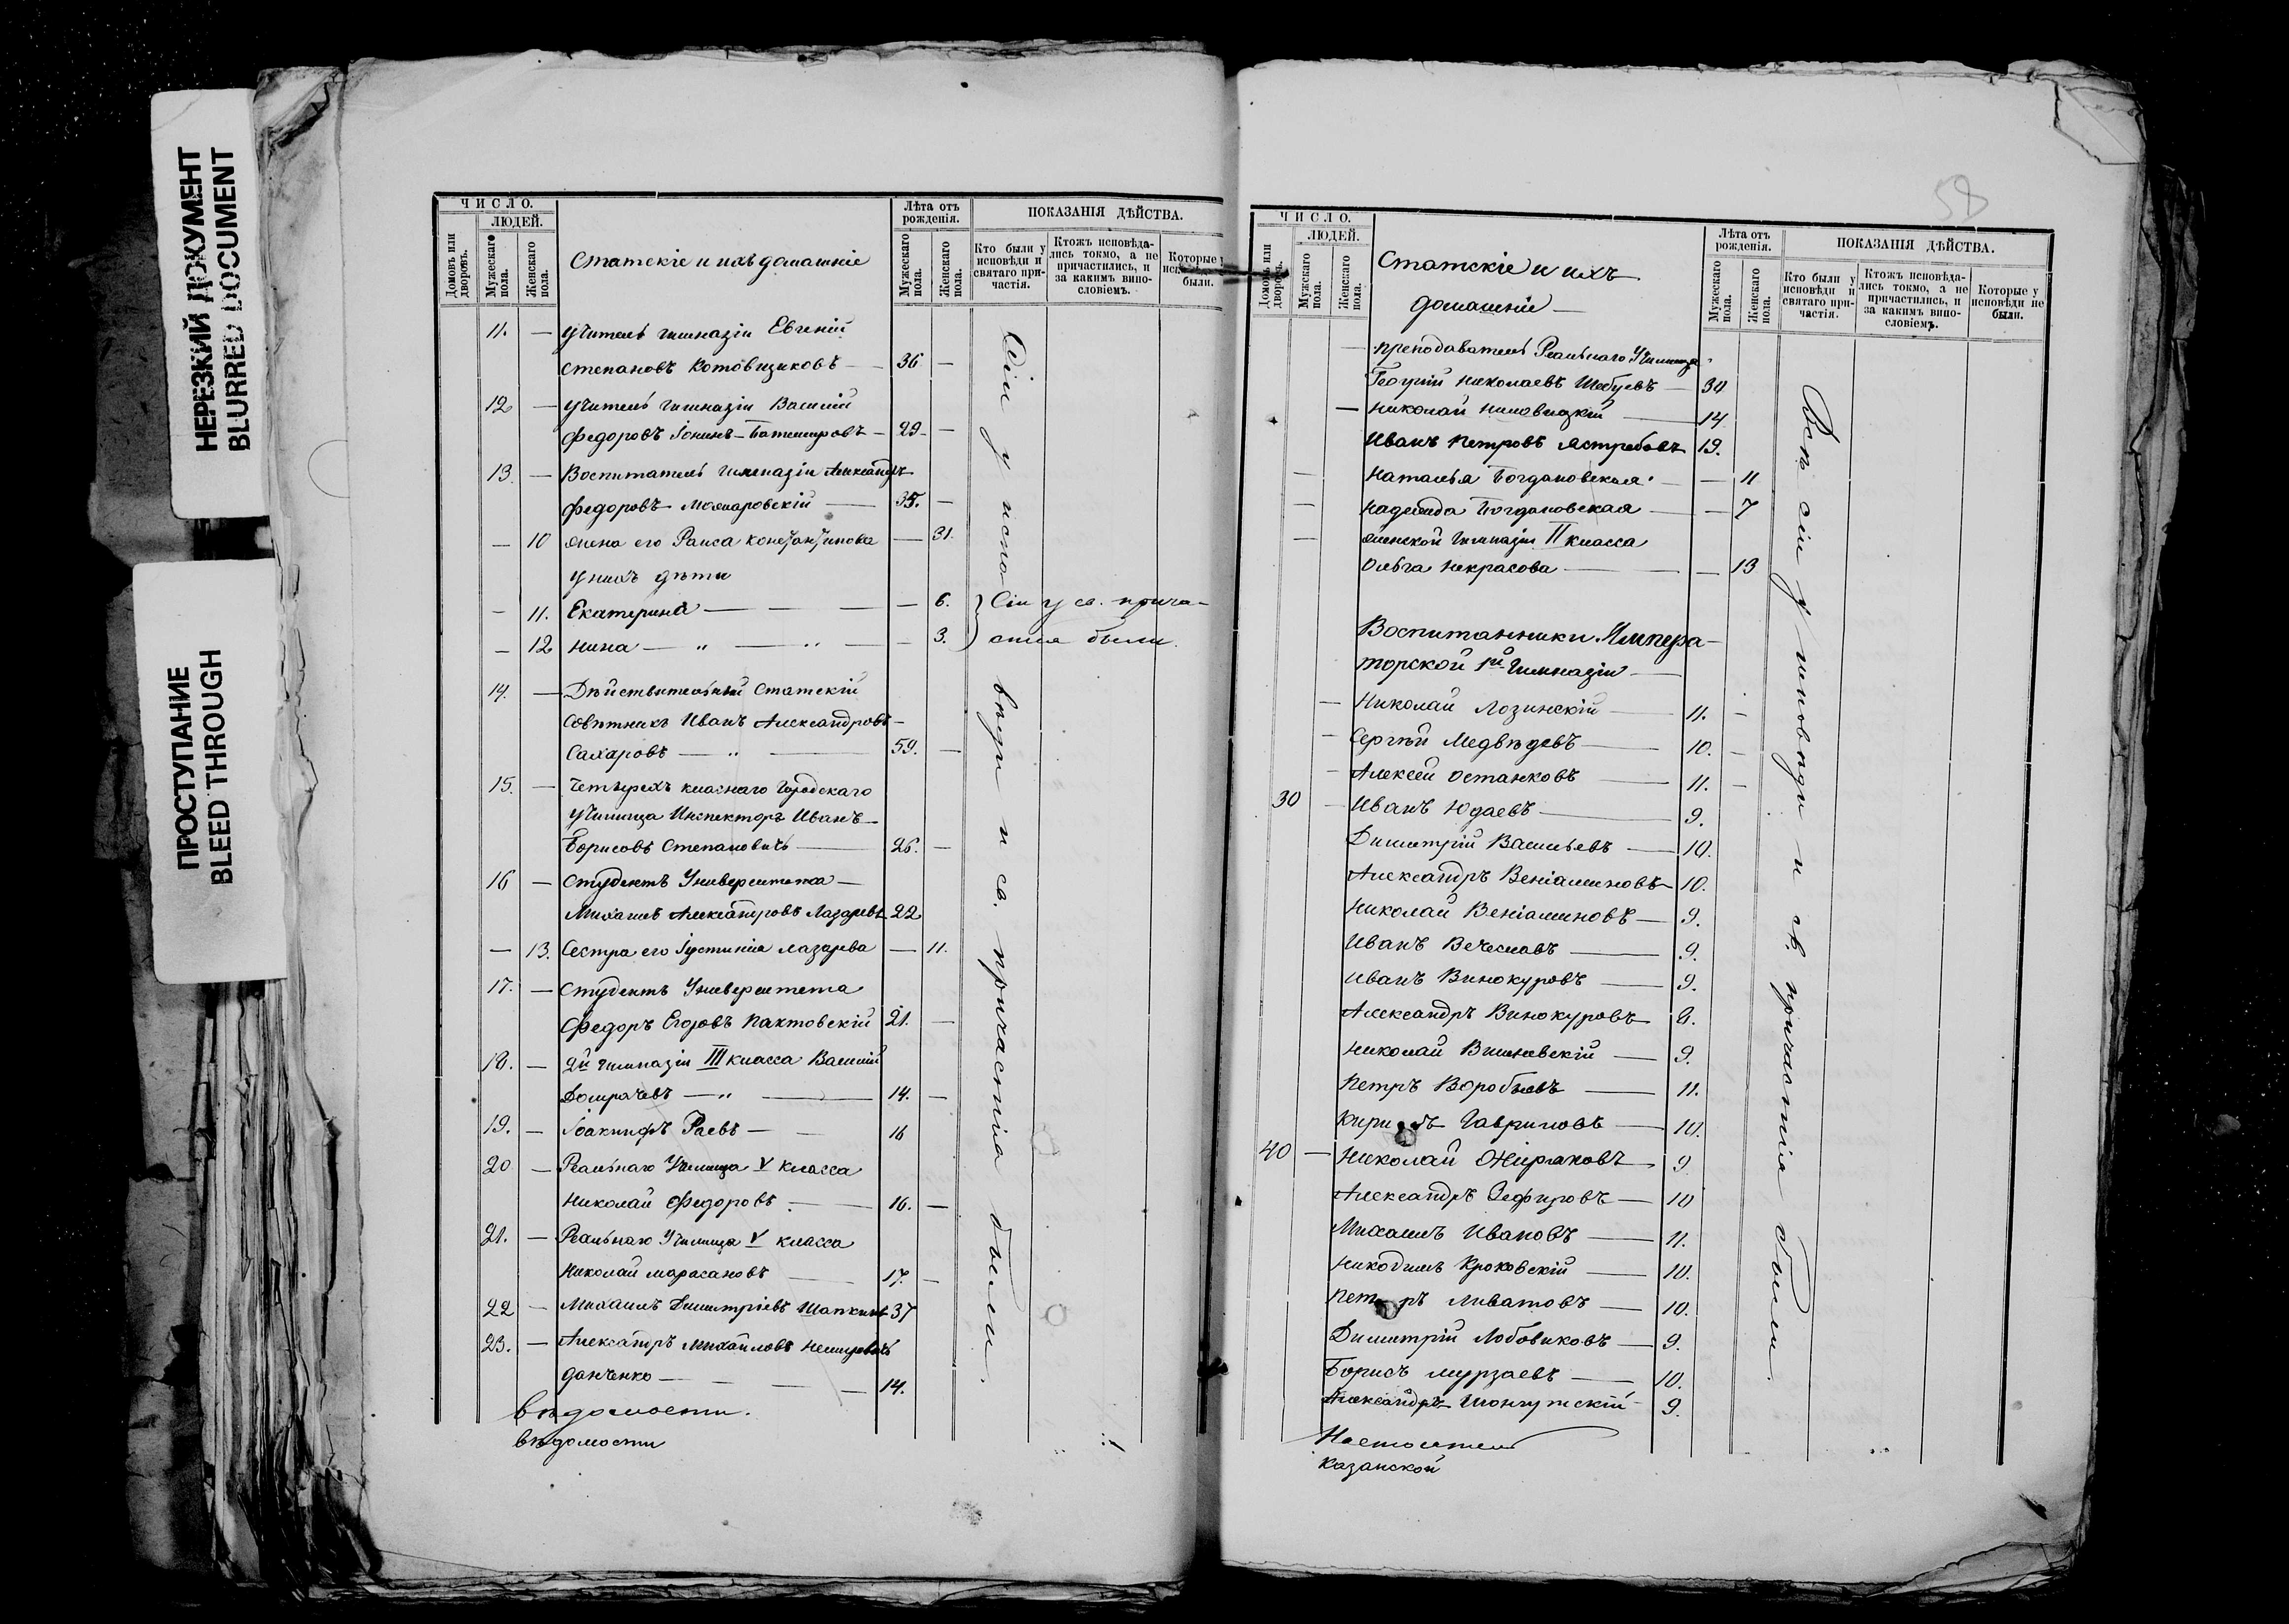 НЕРЕЗКИЙ ДОКУМЕНТ
BLURRED DOCUMENT
ПРОСТУПАНИЕ
BLEED THROUGH
ЧИСЛО.
ЛЮДЕЙ.
Домовъ или дворовъ.
Мужескаго пола.
Женскаго пола.
Статскіе и ихъ домашніе
Лѣта отъ рожденія.
Мужескаго пола.
Женскаго пола.
ПОКАЗАНІЯ ДѢЙСТВА.
Кто были у исповѣди и святаго причастія.
Ктожъ исповѣдались токмо, а не причастились, и за какимъ винословіемъ.
Которые у
были.
11. — Учитель гимназіи Евгеній
Степановъ Котовщиковъ — 36 —
12 — Учитель гимназіи Василій
Федоровъ — 29 —
13 — Воспитатель гимназіи Александръ
Федоровъ — 35. —
— 10 жена его Раиса Константинова — 31.
у нихъ дѣти
— 11. Екатерина — — 6. Сіи у св. прича-
— 12 Нина — „ — „ — 3. стія были.
14. — Дѣйствительный Статскій
Совѣтникъ Иванъ Александровъ —
Сахаровъ — „ — 59. —
15. — Четырехъ класнаго Городскаго
Училища Инспекторъ Иванъ —
Борисовъ Степановичъ — 26. —
16 — Студентъ Университета —
Михаилъ Александровъ Лазаревъ 22
— 13. Сестра его Іустинія Лазарева — 11.
17. — Студентъ Университета
Федоръ Егоровъ Пактовскій 21. —
18. — 2й гимназіи III класса Василій
Домрачевъ — „ — 14. —
19. — Іоакинфъ Раевъ — 16
20 — Реальнаго Училища V класса
Николай Федоровъ — 16. —
21. — Реальнаго Училища V класса
Николай Марасановъ — 17. —
22 — Михаилъ Димитріевъ Шапкинъ 37
23. — Александръ Михайловъ Немировичъ
Данченко — 14.
Сіи у исповѣди и св. причастія были.
вѣдомости.
вѣдомости
58
ЧИСЛО.
ЛЮДЕЙ.
Домовъ или дворовъ.
Мужескаго пола.
Женскаго пола.
Статскіе и ихъ
домашніе —
Лѣта отъ рожденія.
Мужескаго пола.
Женскаго пола.
ПОКАЗАНІЯ ДѢЙСТВА.
Кто были у исповѣди и святаго причастія.
Ктожъ исповѣдались токмо, а не причастились, и за какимъ винословіемъ.
Которые у исповѣди не были.
— преподаватель Реальнаго Училища
Георгій Николаевъ Шебуевъ — 30
— Николай — 14
Иванъ Петровъ Ястребовъ 19.
— Наталья Богдановская — — 11
— Надежда Богдановская — — 7
— женской гимназіи II класса
Ольга Некрасова — — 13
Воспитанники Импера-
торской 1й гимназіи —
— Николай Лозинскій — 11. —
— Сергѣй Медвѣдевъ — 10. —
— Алексѣй Останковъ — 11. —
30 — Иванъ Юдаевъ — 9.
Димитрій Васильевъ — 10.
Александръ Веніаминовъ — 10.
Николай Веніаминовъ — 9.
Иванъ Вечеславъ — 9.
Иванъ Винокуровъ — 9.
Александръ Винокуровъ 8.
Николай Вишневскій — 9.
Петръ Воробьевъ — 11.
Гавриловъ — 10.
40 — Николай Жираковъ 9
Александръ Зефировъ — 10
Михаилъ Ивановъ — 11.
Никодимъ Кроковскій — 10.
Петръ Ливатовъ — 10.
Димитрій Лобовиковъ — 9.
Борисъ Мурзаевъ — 10.
Александръ 9.
Всѣ сіи у исповѣди и св. причастія были.
Настоятель
Казанской